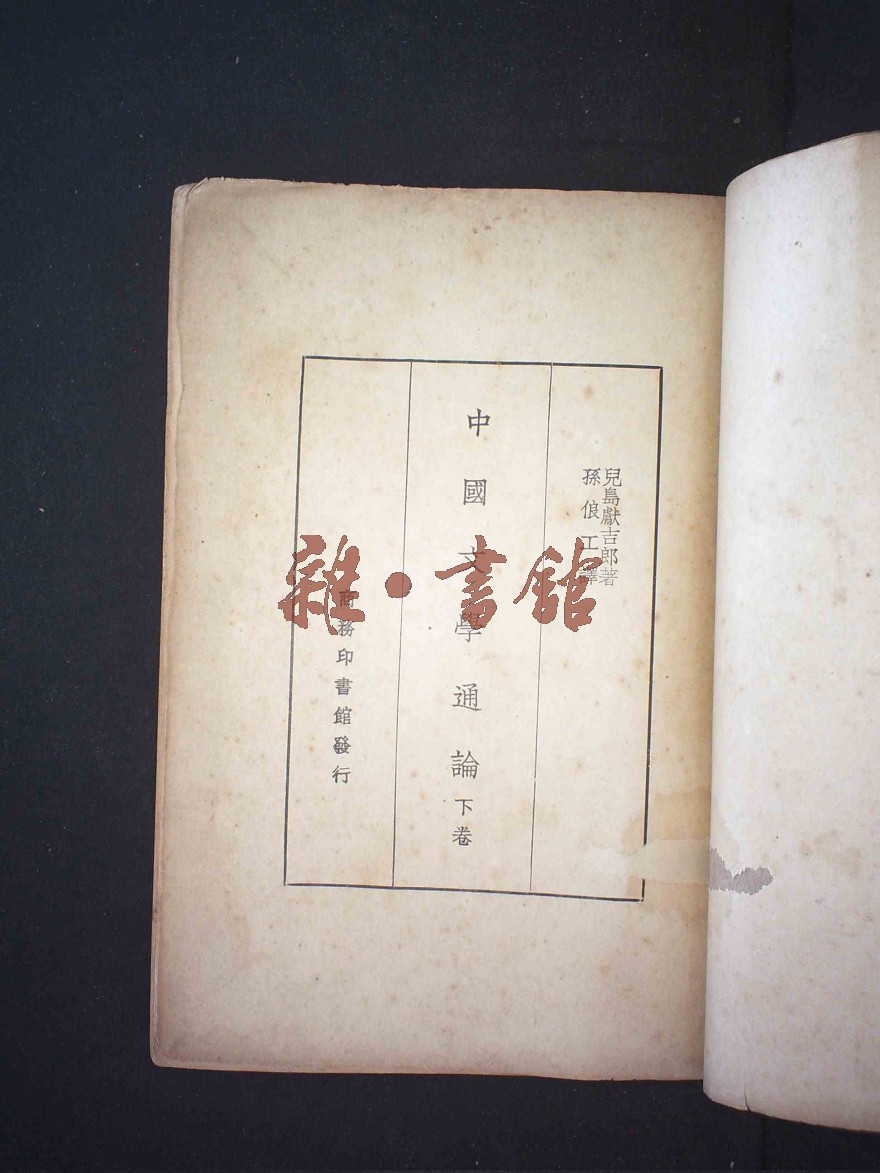 兒島獻吉郎著
孫俍工譯
中國文學通論 下卷
商務印書館發行
雜·書館